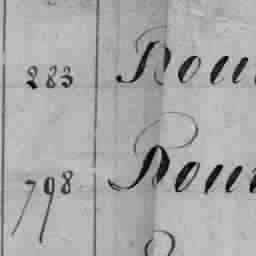 283 Rou
798 Rour